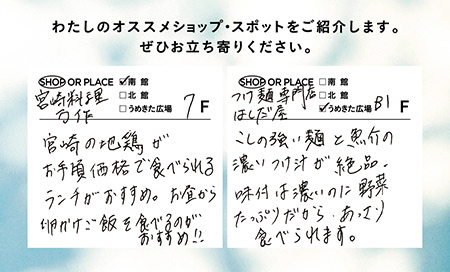 わたしのオススメショップ・スポットをご紹介します。
ぜひお立ち寄りください。
SHOP OR PLACE
☑南館
□北館
□うめきた広場
宮崎料理
万作
7F
宮崎の地鶏が
お手頃価格で食べられる
ランチがおすすめ。お昼から
卵かけご飯を食べるのが
おすすめ!!
SHOP OR PLACE
□南館
□北館
☑うめきた広場
つけ麺専門店
はしだ屋
B1F
こしの強い麺と魚介の
濃いつけ汁が絶品。
味付は濃いのに野菜
たっぷりだから、あっさり
食べられます。